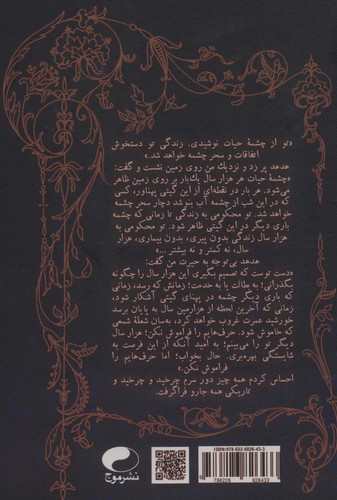 «تو از چشمهٔ حیات نوشیدی. زندگی تو دستخوش
اتفاقات و سحر چشمه خواهد شد.»
هدهد پر زد و نزدیک من روی زمین نشست و گفت:
«چشمهٔ حیات هر هزار سال یک‌بار بر روی زمین ظاهر
می‌شود. هر بار در نقطه‌ای از گیتی پهناور، کسی
که در این شب از چشمه آب بنوشد دچار سحر چشمه
خواهد شد. تو محکومی به زندگی تا زمانی که چشمه
باری دیگر در گیتی ظاهر شود. تو محکومی به
هزار سال زندگی بدون پیری، بدون بیماری، هزار
سال، نه کمتر و نه بیشتر ...»
هدهد بی‌توجه به حیرت من گفت:
«دست توست که تصمیم بگیری این هزار سال را چگونه
بگذرانی؛ به طالت یا به خدمت؛ زمانش که رسد، زمانی
که باری دیگر چشمه در پهنای گیتی آشکار شود،
زمانی که آخرین لحظه از هزارمین سال به پایان برسد
خورشید عمرت غروب خواهد کرد، به‌سان شعلهٔ شمعی
که خاموش شود. حرف‌هایم را فراموش نکن؛ هزار سال
دیگر تو را می‌بینم؛ به امید آنکه از این فرصت به
شایستگی بهره‌بری. حال بخواب؛ اما حرف‌هایم را
فراموش نکن.»
احساس کردم همه چیز دور سرم چرخید و چرخید و
تاریکی همه جا رو فراگرفت.
نشر موج
ISBN: 978-622-6926-43-3
9786226 926433